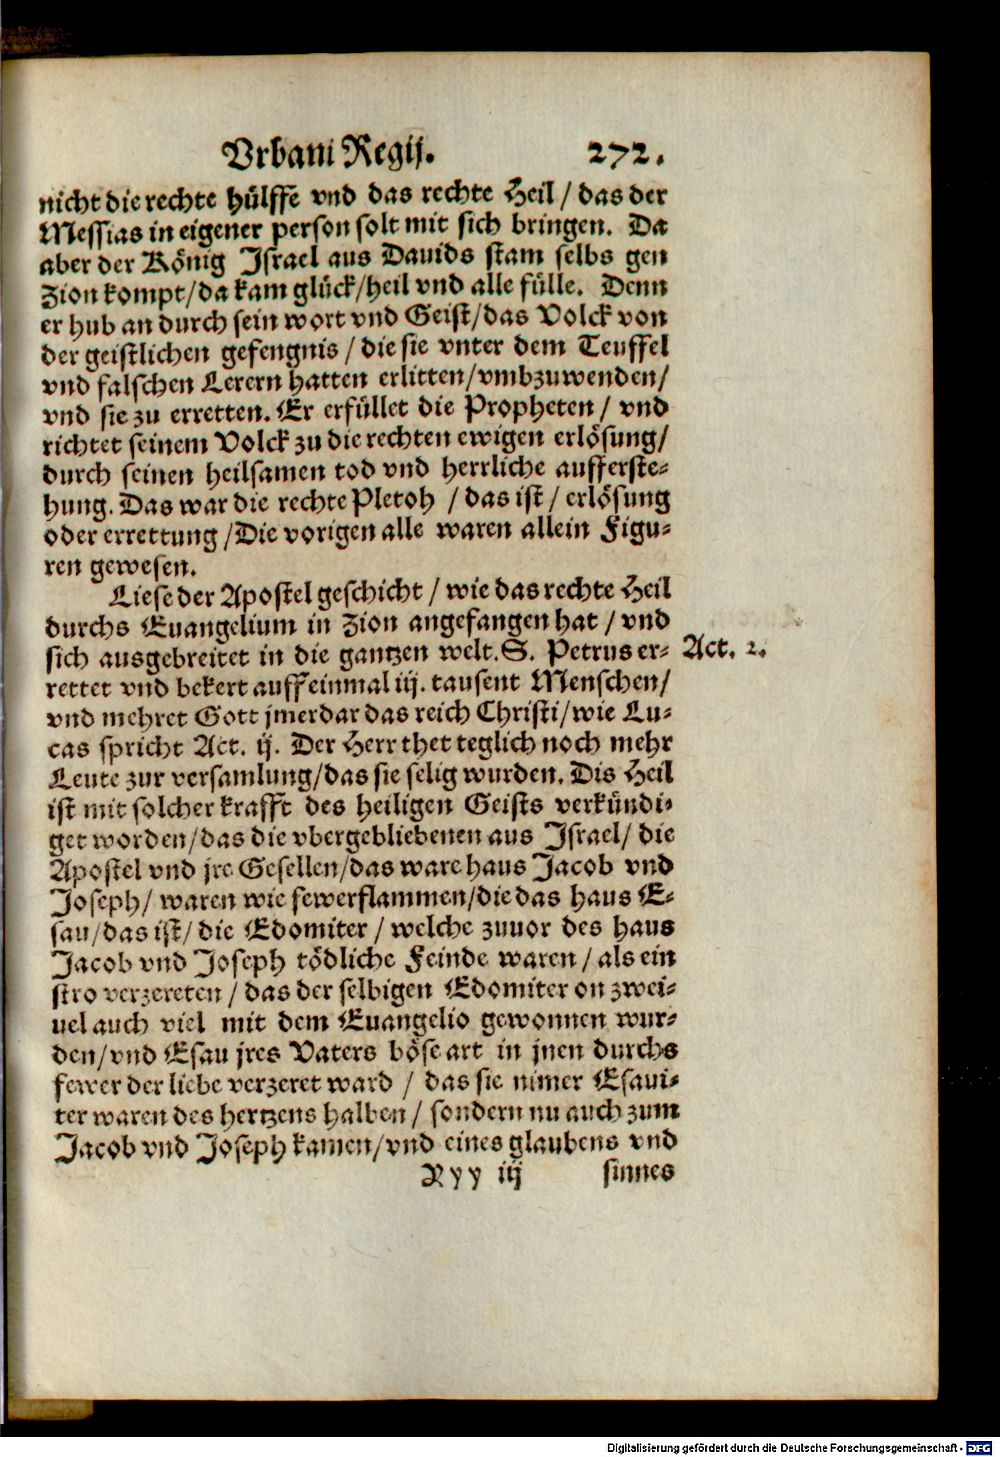 Vrbani Regij. 272.
nicht die rechte hülffe vnd das rechte Heil / das der
Messias in eigener person solt mit sich bringen. Da
aber der König Israel aus Dauids stam selbs gen
Zion kompt/da kam glück/heil vnd alle fülle. Denn
er hub an durch sein wort vnd Geist/das Volck von
der geistlichen gefengnis / die sie vnter dem Teuffel
vnd falschen Lerern hatten erlitten/vmbzuwenden/
vnd sie zu erretten. Er erfüllet die Propheten / vnd
richtet seinem Volck zu die rechten ewigen erlösung/
durch seinen heilsamen tod vnd herrliche aufferste-
hung. Das war die rechte Pletoh / das ist / erlösung
oder errettung /Die vorigen alle waren allein Figu-
ren gewesen.
Liese der Apostel geschicht / wie das rechte Heil
durchs Euangelium in Zion angefangen hat / vnd
sich ausgebreitet in die gantzen welt. S. Petrus er- Act. 2.
rettet vnd bekert auff einmal iij. tausent Menschen/
vnd mehret Gott jmerdar das reich Christi/wie Lu-
cas spricht Act. ij. Der Herr thet teglich noch mehr
Leute zur versamlung/das sie selig wurden. Dis Heil
ist mit solcher krafft des heiligen Geists verkündi-
get worden/das die vbergebliebenen aus Israel/ die
Apostel vnd jre Gesellen/das ware haus Jacob vnd
Joseph/ waren wie fewerflammen/die das haus E-
sau/das ist/ die Edomiter / welche zuuor des haus
Jacob vnd Joseph tödliche Feinde waren / als ein
stro verzereten / das der selbigen Edomiter on zwei-
uel auch viel mit dem Euangelio gewonnen wur-
den/vnd Esau jres Vaters böse art in jnen durchs
fewer der liebe verzeret ward / das sie nimer Esaui-
ter waren des hertzens halben/ sondern nu auch zum
Jacob vnd Joseph kamen/vnd eines glaubens vnd
Xyy iij sinnes
Digitalisierung gefördert durch die Deutsche Forschungsgemeinschaft - DFG